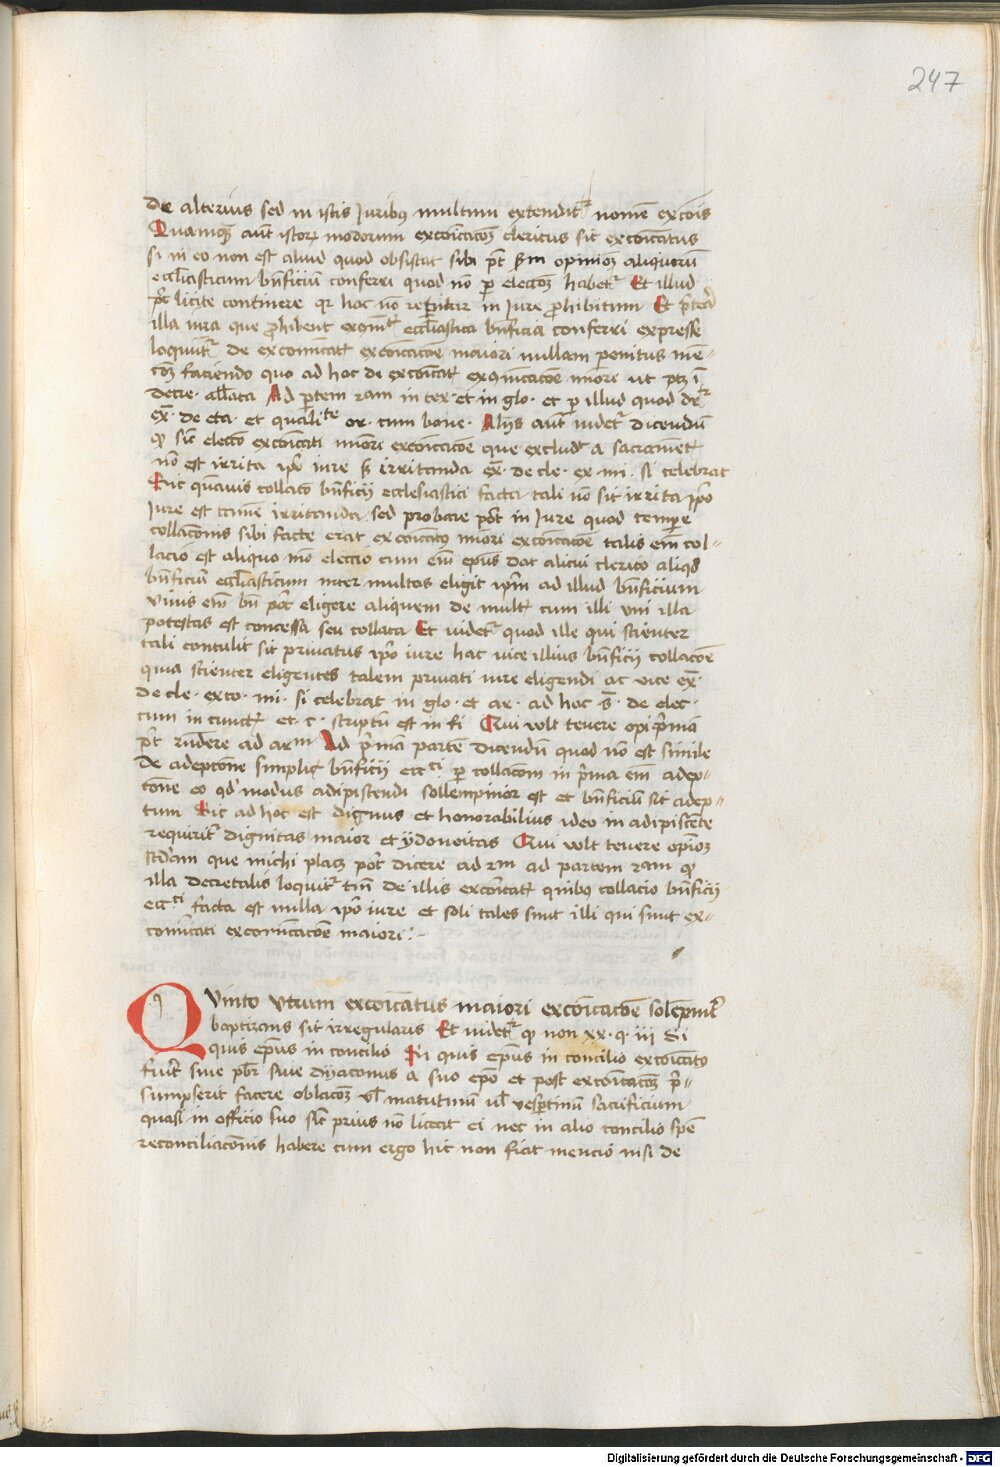 247
de alterius sed in istis Juribus multum extendit^r nomē excōis
Quamq̄ʒ aut̄ istorꝝ modorum excōicacōʒ clericus sit excōicatus
si in eo non est aliud quod obsistat sibi pōt s̄m opinioʒ aliquorū
eccl̄iasticum bn̄ficiū conferri quod nō ꝑ eleccōʒ habet^r Et illud
pōt licite continere qꝛ hoc nō reꝑitur in iure ꝓhibitum Et
illa iura que ꝓhibent excōīcat^r eccl̄iastica bn̄ficia conferri expresse
loquūt^r de excomicat^r excōicacōe maiori nullam penitus men-
cōʒ faciendo quo ad hoc de excōicat^r excōicacōe miori ut ptʒ ī
decre. all̄ata Ad ꝑtem ꝯ̄ram in tex. et in glo. et ꝑ illud quod d^r
ex̄. de eta. et qualite or. cum bone. Alijs aut̄ uidet^r dicendū
ꝙ sic̄ elecco excōicati miori excōicacōe que excludit a sacramēt^r
nō est irrita ip̄o iure s̄ irritanda ex̄. de cle. ex. mi. si celebrat
Sic quāuis collaco bn̄ficij ecclesiastici facta tali nō sit irrita ip̄o
Jure est tamē irritanda sed probare pōt in Jure quod tempore
collacōnis sibi facte erat excōicatꝰ miori excōicacōe talis em̄ col-
lacio est aliquo mō eleccio cum em̄ ep̄us dat alicui clerico aliqđ
bn̄ficiū eccl̄iasticum inter multos eligit ip̄m ad illud bn̄ficium
vnus em̄ bn̄ pōt eligere aliquem de mult^r cum illi uni illa
potestas est concessa seu collata Et uidet^r quod ille qui scienter
tali contulit sit priuatus ip̄o iure hac uice illius bn̄ficij collacōe
quia scienter eligentes talem priuati iure eligendi ac vice ex̄.
de cle. exco. mi. si celebrat in glo. et ar. ad hoc s̄. de elec.
cum in cunct^r et. c. scriptū est in fi Qui volt tenere opi p̄mā
pōt r̄ndere ad arm Ad p̄mā partē dicendū quod nō est simile
de adeptione simplicꝝ bn̄ficij ecc^ti ꝑ collacōm in p̄ma em̄ adep-
tōne eo qđ modus adipiscendi sollempnior est et bn̄ficiū sic adep-
tum Sic ad hoc est dignius et honorabilius ideo in adipiscēte
requirit^r dignitas maior et ydoneitas Qui volt tenere opinioʒ
scd̄am que michi placʒ pōt dicere ad rm ad partem ꝯ̄ram ꝙ
illa decretalis loquit^r tm̄ de illis excōicat^r quibꝰ collacio bn̄ficij
ecc^ti facta est nulla ip̄o iure et soli tales sunt illi qui sunt ex-
comicati excomicacōe maiori :-
Quinto vtrum excōicatus maiori excōicacōe solēpnit^r
baptizans sit irregularis Et uidet^r ꝙ non xx. q. iii Si
quis ep̄us in concilio Si quis ep̄us in concilio excōicatꝰ
fuit siue pb̄r siue dyaconus a suo ep̄o et post excōicacōʒ p̄-
sumpserit facere oblacōʒ ul̄ matutinū ul̄ vesꝑtinū sacrificium
quasi in officio suo sic̄ prius nō liceat ei nec in alio concilio spē
reconciliacōnis habere cum ergo hic non fiat mencio nisi de
Digitalisierung gefördert durch die Deutsche Forschungsgemeinschaft - DFG